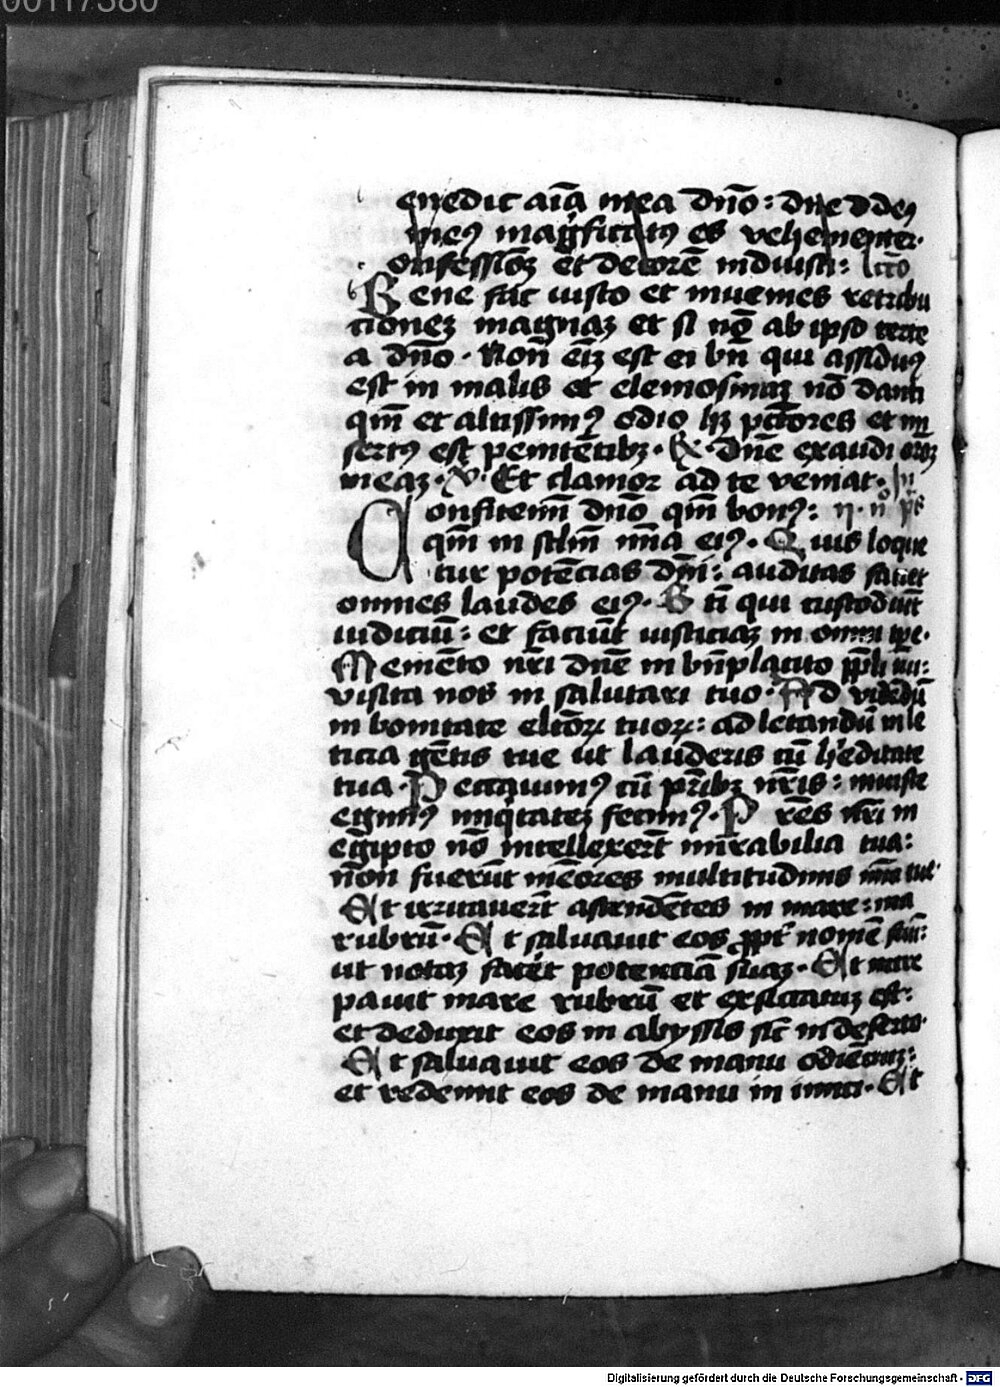 00117380
enedic aīa mea dn̄o : dn̄e dde9
me9 magīficat9 es vehementer.
onfessionē et decorē induisti : lcto
Bene fac iusto et inuenies retribu
cionez magnaz et si nō ab ipso certe
a dn̄o . Non ē eīz est ei bn̄ qui assidu9
est in malis et elemosinaz nō danti
qm̄ et altissim9 odio hz pctōres et mi
sert9 est penitētibz . R . Dn̄e exaudi oroz
meaz . V . Et clamor ad te veniat .
Confitemī dn̄o qm̄ bon9 :
qm̄ in sclm̄ mīa ei9 . Quis loque
tur potēcias dn̄i : auditas faciet
omnes laudes ei9 . B ti qui custodiūt
iudiciū : et faciūt iusticiaz in omni tpe .
Memēto nr̄i dn̄e in bn̄placito ppli tui :
visita nos in salutari tuo . Ad vidēdū
in bonitate elcōꝝ tuoꝝ : ad letandū in le
ticia gētis tue ut lauderis cū h'editate
tua . Peccauim9 cū pr̄ibz nr̄is : iniuste
egim9 iniq̄tatez fecim9 . P res nr̄i in
egipto nō intellexert̄ mirabilia tua :
non fuerūt mēores multitudinis mīe tue .
Et irritauert̄ ascendētes in mare : ma
rubrū . Et saluauit eos ꝓpt' nomē suū :
ut notaz facēt potenciā suaz . Et incre
pauit mare rubrū et exsiccatuz est :
et deduxit eos in abyssis sic̄ in deserto .
Et saluauit eos de manu odiēciuz :
et redemit eos de manu in imici . Et
Digitalisierung gefördert durch die Deutsche Forschungsgemeinschaft - DFG